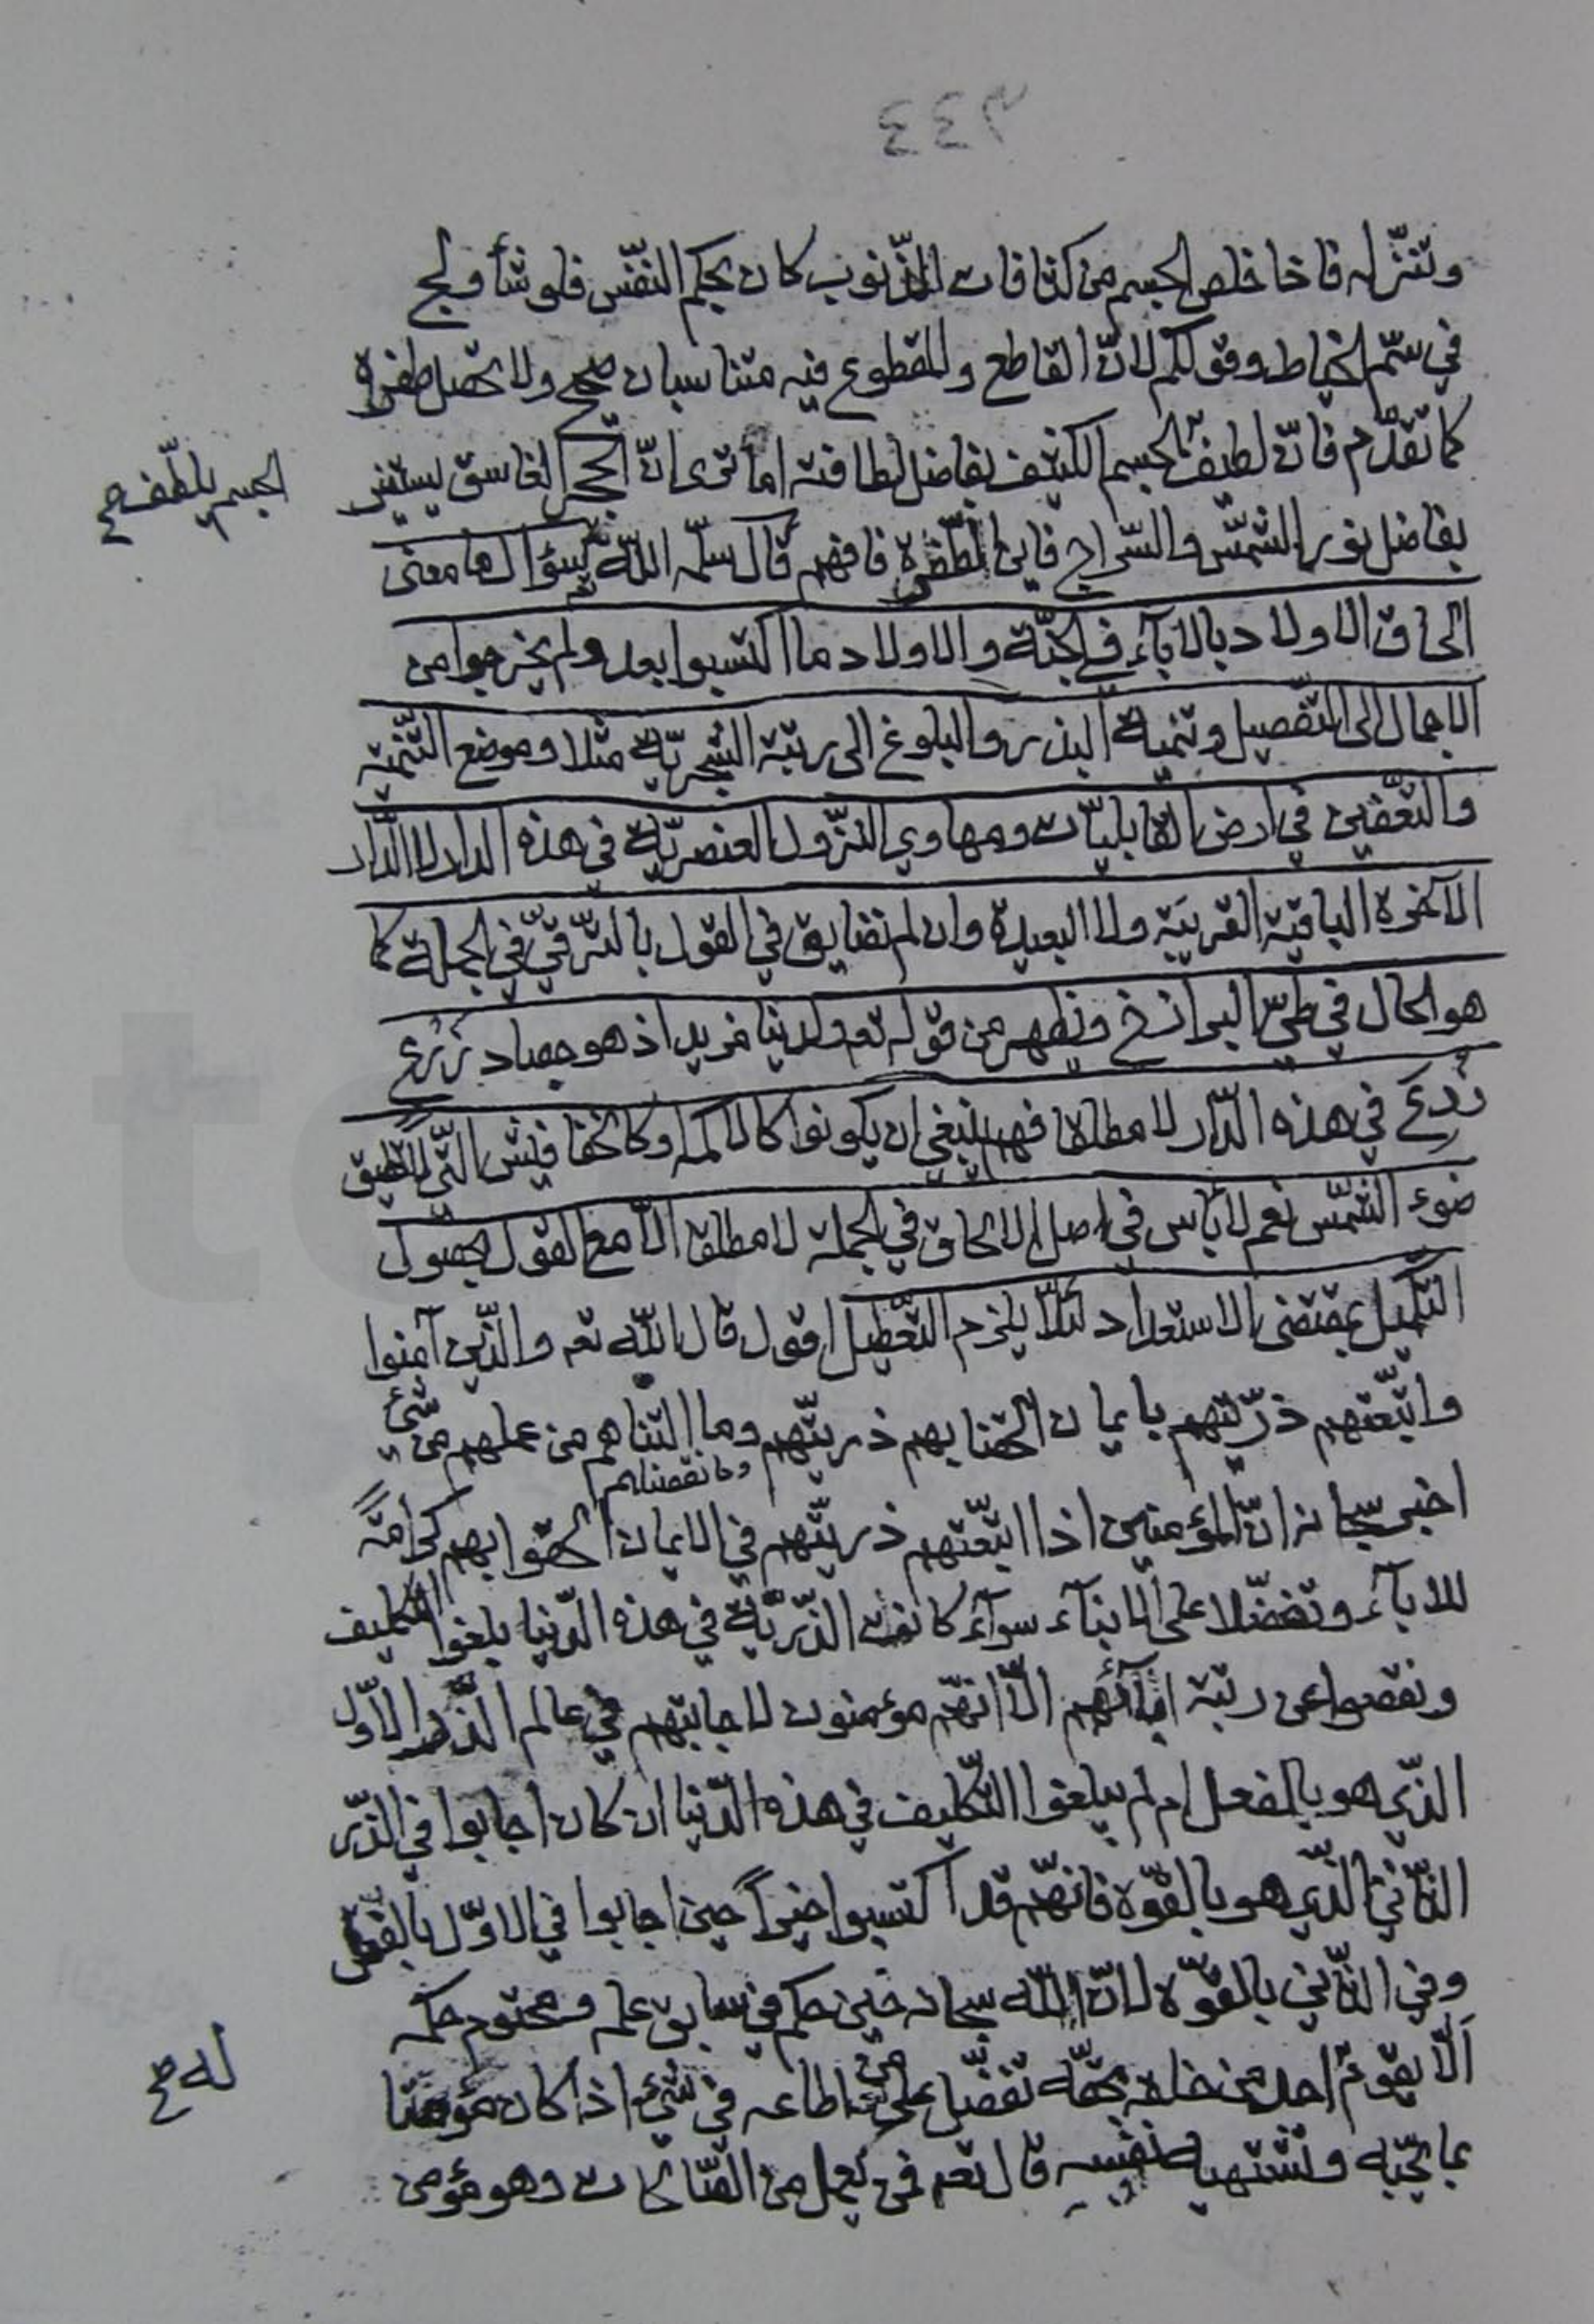 ٢٤٤
وتنزله فاذا خلص الجسم من كثافات الذنوب كان بحكم النفس فلو شاء ولج
في سمّ الخياط وقولكم لانّ القاطع والمقطوع فيه متناسبان صحيح ولا تحصل طفرة
كما تقدّم فانّ لطيف الجسم الكثيف بفاضل لطافته اما ترى انّ الحجر الغاسق يستنير
الجسم يلطّف خ
بفاضل نور الشمس والسّراج فاين الطّفرة فافهم قال سلّمه اللّه تع سؤال ما معنى
الحاق الاولاد بالاباء في الجنّة والاولاد ما اكتسبوا بعد ولم يخرجوا من
الاجمال الى التّفصيل وتنمية البذر والبلوغ الى رتبة الشجريّة مثلا وموضع التّنمية
والتّعفين في ارض القابليّات ومهاوي النّزول العنصريّة في هذه الدار لا الدّار
الآخرة الباقية القريبة ولا البعيدة وان لم نضايق في القول بالتّرقّي في الجملة كما
هو الحال في طيّ البرازخ ويظهر من قوله تع ولدينا مزيد اذ هو حصاد زرع
زرع في هذه الدّار لا مطلقا فهم ينبغي ان يكونوا كالاكمه وكالخفافيش الّتي لا تطيق
ضوء الشّمس نعم لا بأس في اصل الالحاق في الجملة لا مطلقا الّا مع القول بحصول
التّكميل بمقتضى الاستعداد لئلّا يلزم التّعطيل اقول قال اللّه تع والّذين آمنوا
واتّبعتهم ذرّيّتهم بايمان الحقنا بهم ذريّتهم وما التناهم من عملهم من شئ
وما نقصناهم
اخبر سبحانه انّ المؤمنين اذا اتّبعتهم ذريّتهم في الايمان الحقوا بهم كرامةً
للاباء وتفضّلا على الابناء سواء كانت الذّريّة في هذه الدّنيا بلغوا التكليف
ونقصوا عن رتبة ابائهم الّا انّهم مؤمنون لاجابتهم في عالم الذّر الاوّل
الذّي هو بالفعل ام لم يبلغوا التّكليف في هذه الدّنيا ان كان اجابوا في الذّر
الثّاني الذّي هو بالقوّة فانّهم قد اكتسبوا خيراً حين اجابوا في الاوّل بالفعل
وفي الثّاني بالقوّة لانّ اللّه سبحانه حين حكم في سابق علمه ومحتوم حكمه
الّا يقوم احد من خلقه بحقّه تفضّل على من اطاعه في شئ اذا كان مؤمنا
له خ
بما يحبّه وتشتهيه نفسه قال تع فمن يعمل من الصّالحات وهو مؤمن